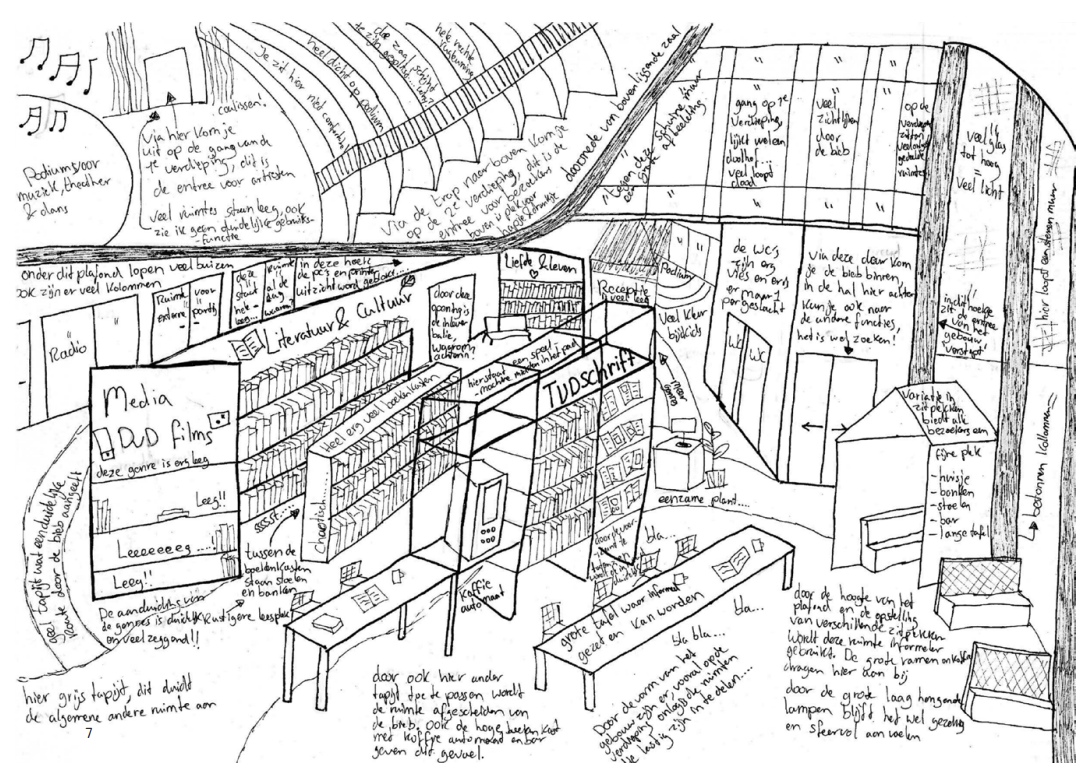 coulissen!
Via hier kom je
uit op de gang van de
1e verdieping, dit is
de entree voor artiesten
veel ruimtes staan leeg, ook
zie ik geen duidelijke gebruiks-
functie
Podium voor
muziek, theather
& dans
Je zit hier niet comfortabel
heel dicht op podium
de zaal schijnt
te zijn
hele slechte
Via de trap naar boven kom je
op de 2e verdieping, dit is de
entree voor bezoekers
doorsnede van bovenlissende zaal
"tegen deze schuine muur
grote afbeelding
gang op 1e
verdieping,
lijkt wel een
doolhof...
veel loopt
dood
veel
zichtlijnen
door
de bieb
op de
veel glas
tot hoog
=
veel licht
hier loopt
betonnen kolommen
onder dit plafond lopen veel buizen
ook zijn er veel kolommen
Radio
Ruimte
voor
in deze hoek
de pc's en printer
uitzicht word
Liefde & leven
Literatuur & Cultuur
door deze
opening is
de inlever
balie,
waarom
achterin?
hier staat een spoel-
machine midden in het pad
TIJDSCHRIFT
Receptie
veel leeg
Podium
veel kleur
bij kids
de WC's
zijn erg
vies en er is
er maar 1
per geslacht
WC
WC
Via deze deur kom
je de bieb binnen
in de hal hier achter
kun je ook naar
de andere functies,
het is wel zoeken!
in dit hoekje
zit de entree
van het
gebouw
'verstopt'
Variatie in
zitplekken
biedt elke
bezoeker een
fijne plek
- huisje
- banken
- stoelen
- bar
- lange tafel
Media
DVD films
deze genre is erg leeg
Leeg!!
Leeeeeeeg ....!
Leeg!!
Heel erg veel boekenkasten
Chaotisch
tussen de
boekenkasten
staan stoelen
en banken
rustigere leesplek
De aanduiding van
de genres is duidelijk
en veelzeggend!!
geel tapijt wat een duidelijke
route door de bieb aangeeft
eenzame plant....
Koffie
automaat
bla...
grote tafel waar informeel
gezeten kan worden
bla...
bla bla...
hier grijs tapijt, dit duidt
de algemene andere ruimte aan
door ook hier ander
tapijt toe te passen wordt
de ruimte afgescheiden van
de bieb, ook de hoge boekenkast
met koffie automaat en bar
geven dit gevoel.
Door de vorm van het
gebouw zijn er, vooral op de
verdieping onlogische ruimten
die lastig zijn in te delen...
door de hoogte van het
plafond en de opstelling
van verschillende zitplekken
wordt deze ruimte informeler
gebruikt. De grote ramen
dragen hier aan bij
door de grote laag hangende
lampen blijft het wel gezellig
en sfeervol aanvoelen
7